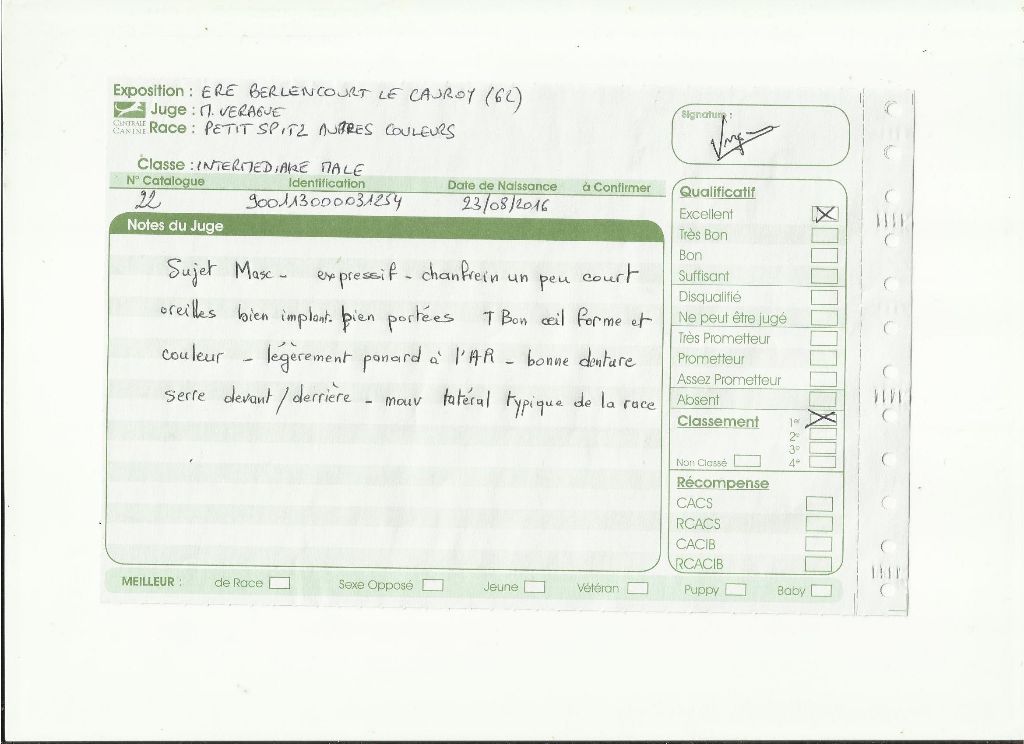 Exposition : ERE BERLENCOURT LE CAUROY (62)
Juge : M. VERAGUE
CENTRALE CANINE
Race : PETIT SPITZ AUTRES COULEURS
Signature :
Classe : INTERMEDIAIRE MALE
N° Catalogue Identification Date de Naissance à Confirmer
22 900113000031254 23/08/2016
Notes du Juge
Sujet Masc - expressif - chanfrein un peu court
oreilles bien implant. bien portées T Bon œil forme et
couleur - légèrement panard à l'AR - bonne denture
serre devant / derrière - mouv latéral typique de la race
Qualificatif
Excellent
Très Bon
Bon
Suffisant
Disqualifié
Ne peut être jugé
Très Prometteur
Prometteur
Assez Prometteur
Absent
Classement 1er
2e
3e
Non Classé 4e
Récompense
CACS
RCACS
CACIB
RCACIB
MEILLEUR : de Race Sexe Opposé Jeune Vétéran Puppy Baby